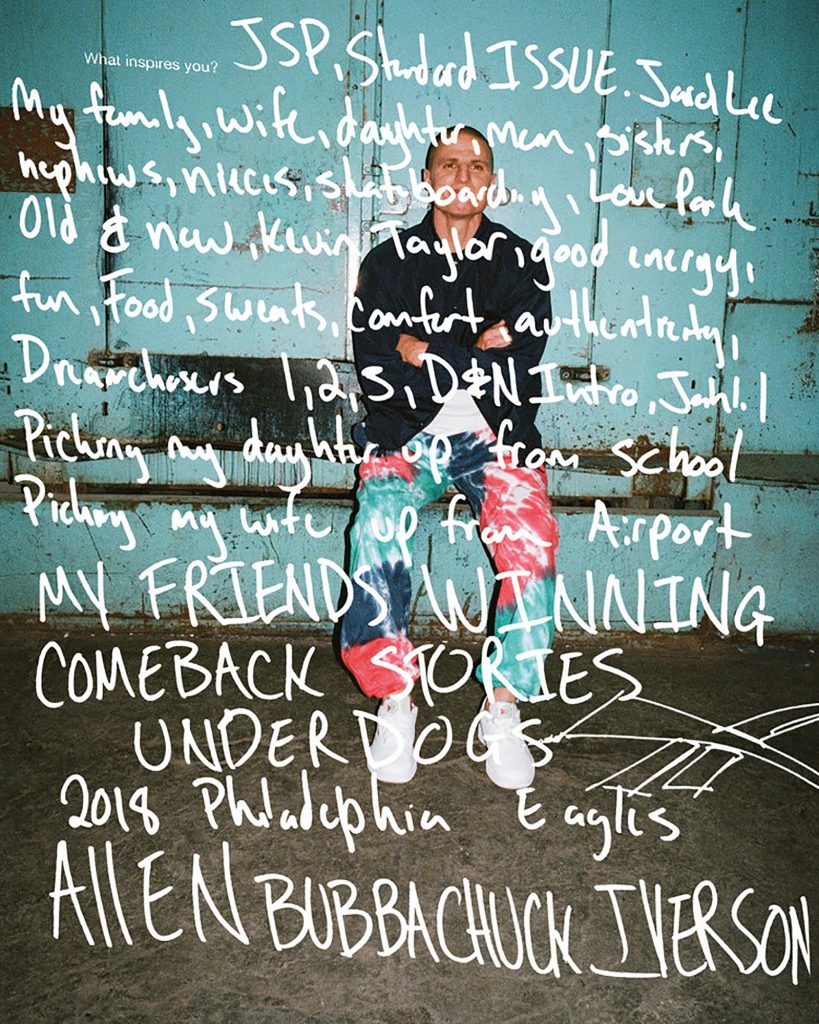 What inspires you? JSP, Standard ISSUE. Jared Lee
My family, wife, daughter, mom, sisters,
nephews, nieces, skateboarding, Love Park
Old & new, Kevin Taylor, good energy,
fun, Food, sweats, comfort, authenticity,
Dreamchasers 1, 2, 3, D&N Intro,
Picking my daughter up from school
Picking my wife up from Airport
MY FRIENDS WINNING
COMEBACK STORIES
UNDERDOGS
2018 Philadelphia Eagles
AllEN BUBBACHUCK IVERSON